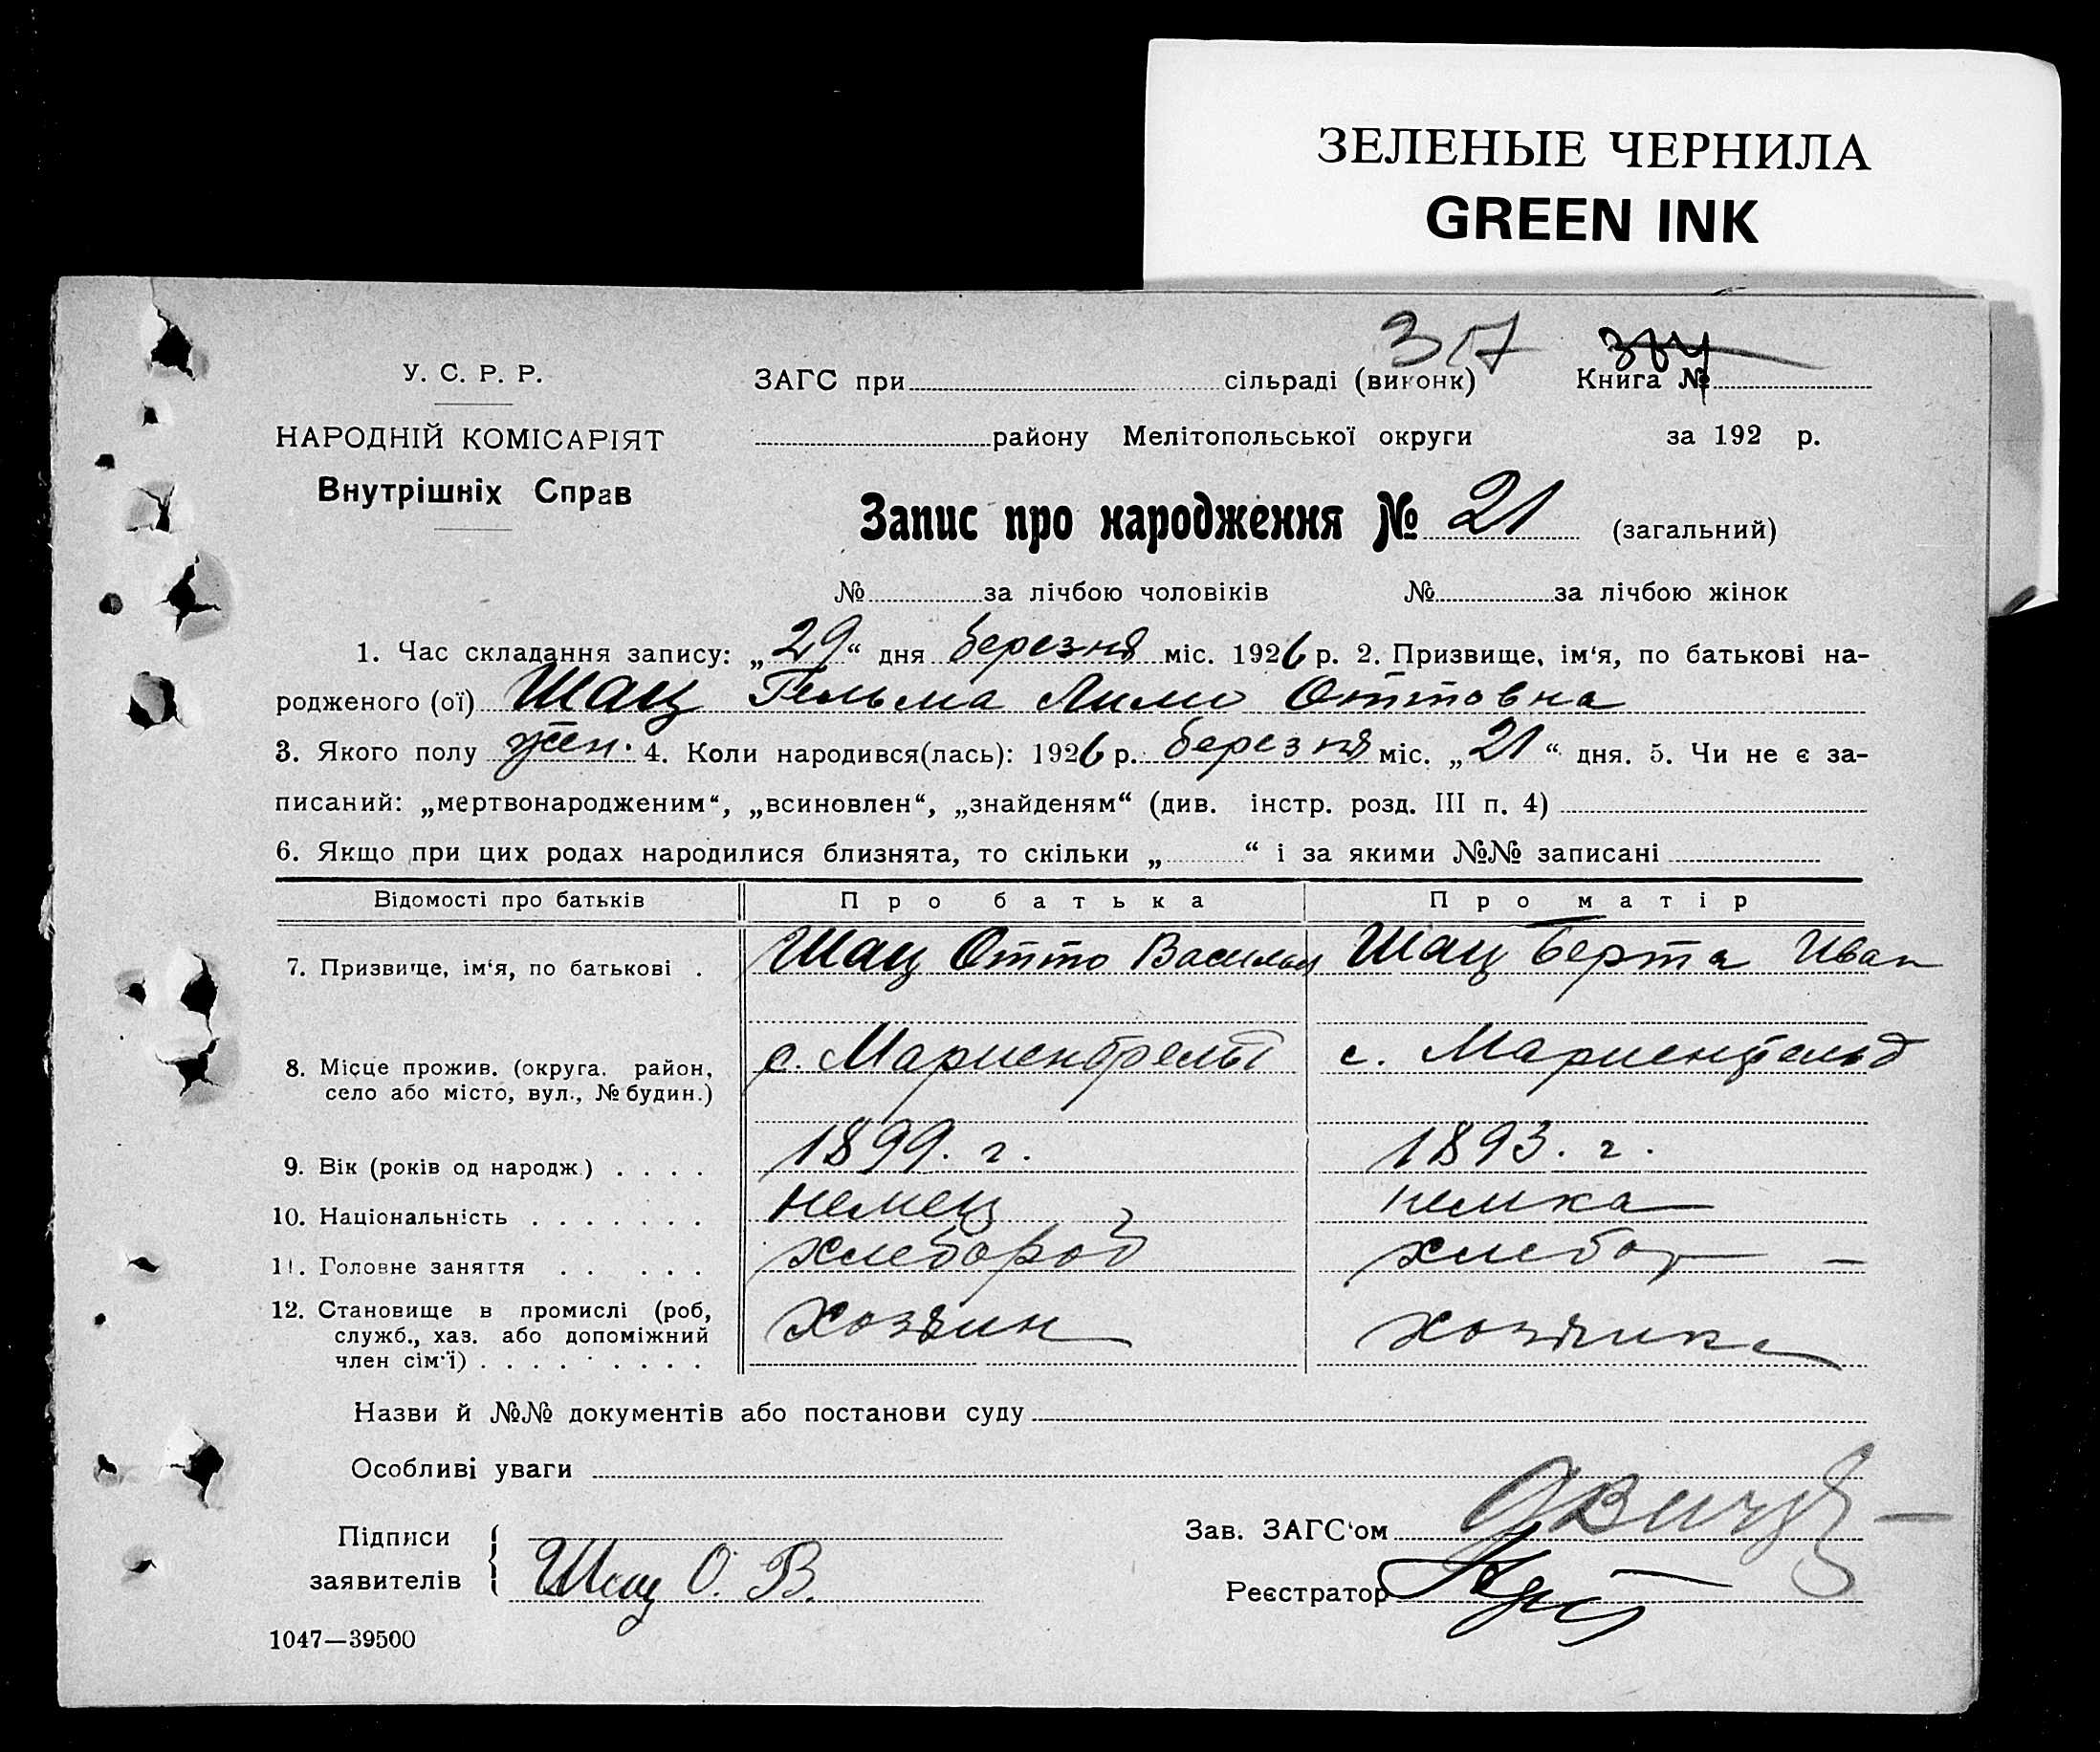 ЗЕЛЕНЫЕ ЧЕРНИЛА
GREEN INK
317
У. С. Р. Р.
ЗАГС при сільраді (виконк) Книга №
НАРОДНІЙ КОМІСАРІЯТ
району Мелітопольської округи за 192 р.
Внутрішніх Справ
Запис про народження № 21 (загальний)
№ за лічбою чоловіків № за лічбою жінок
1. Час складання запису: „29“ дня березня міс. 1926 р. 2. Призвище, ім‘я, по батькові на-
родженого (ої) Шац Гельма Оттовна
3. Якого полу жен. 4. Коли народився(лась): 1926 р. березня міс. „21“ дня. 5. Чи не є за-
писаний: „мертвонародженим“, „всиновлен“, „знайденям“ (див. інстр. розд. III п. 4)
6. Якщо при цих родах народилися близнята, то скільки „ “ і за якими №№ записані
Відомості про батьків Про батька Про матір
7. Призвище, ім‘я, по батькові . Шац Отто Васильев Шац Берта Иван
8. Місце прожив. (округа. район, с. Мариенфельд с. Мариенфельд
село або місто, вул., № будин.)
9. Вік (років од народж.) . . . . 1899. г. 1893. г.
10. Національність . . . . . . . немец немка
11. Головне заняття . . . . . хлебороб хлебор —
12. Становище в промислі (роб, хозяин хозяика
служб., хаз. або допоміжний
член сім‘ї) . . . . . . . . .
Назви й №№ документів або постанови суду
Особливі уваги
Підписи Зав. ЗАГС‘ом
заявителів Шац О. В. Реєстратор
1047—39500